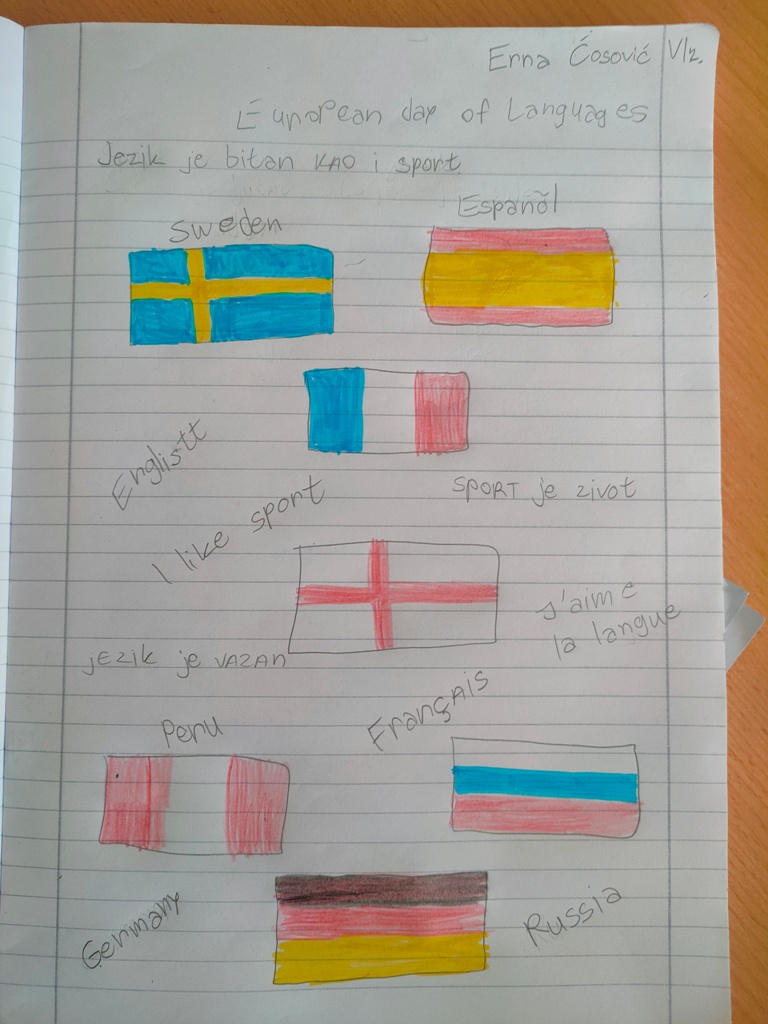 Erna Ćosović VI/2.
European day of Languages
Jezik je bitan KAO i sport
Sweden
Español
Englistt
I like sport
SPORT je zivot
J'aime
la langue
jEZIK je VAZAN
Français
Peru
Germany
Russia